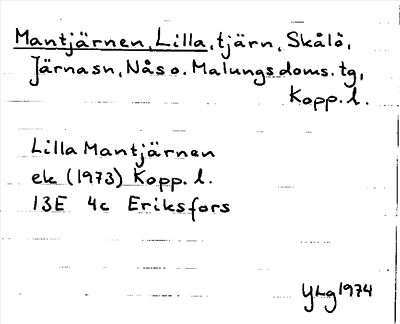 Mantjärnen, Lilla, tjärn, Skålö,
Järnasn, Nås o. Malungs doms. tg,
Kopp. l.
Lilla Mantjärnen
ek (1973) Kopp. l.
13E 4c Eriksfors
YLg 1974